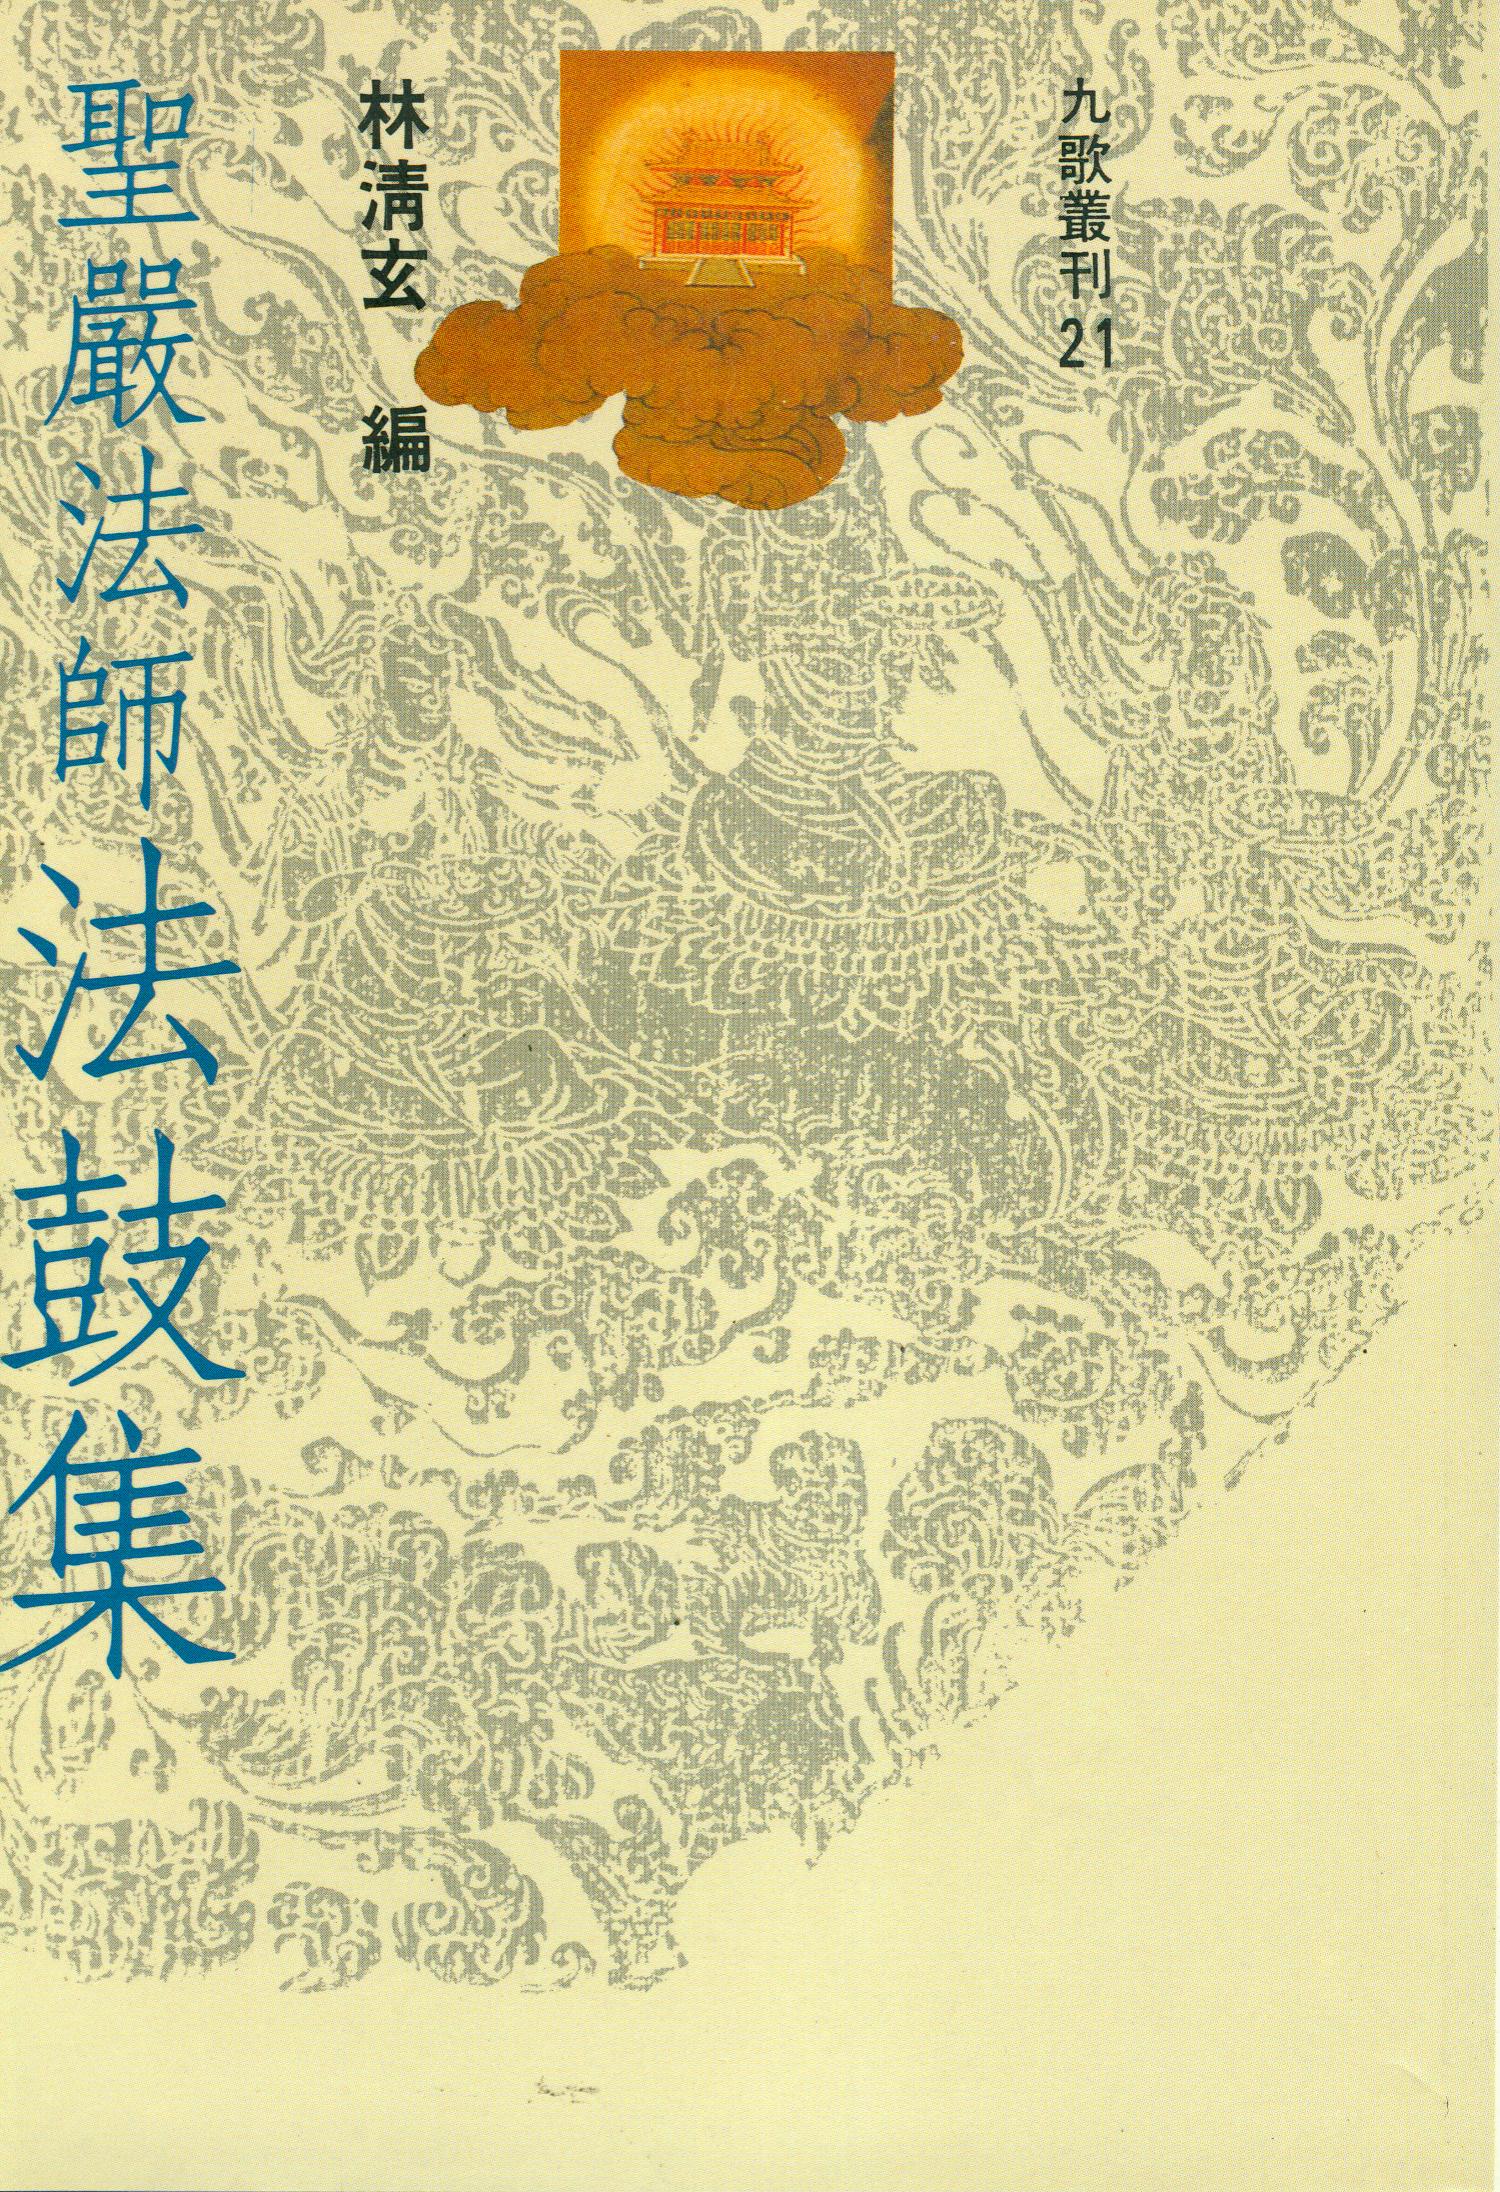 九歌叢刊21
林淸玄 編
聖嚴法師法鼓集